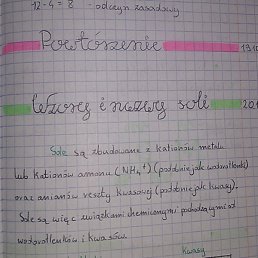 12-4 = 8 - odczyn zasadowy
Powtórzenie 19.10
Wzory i nazwy soli 20.
Sole są zbudowane z kationów metalu
lub kationów amonu (NH₄⁺) (podobnie jak wodorotlenki)
oraz anionów reszty kwasowej (podobnie jak kwasy).
Sole są więc związkami chemicznymi pochodzącymi od
wodorotlenków i kwasów.
kwasy